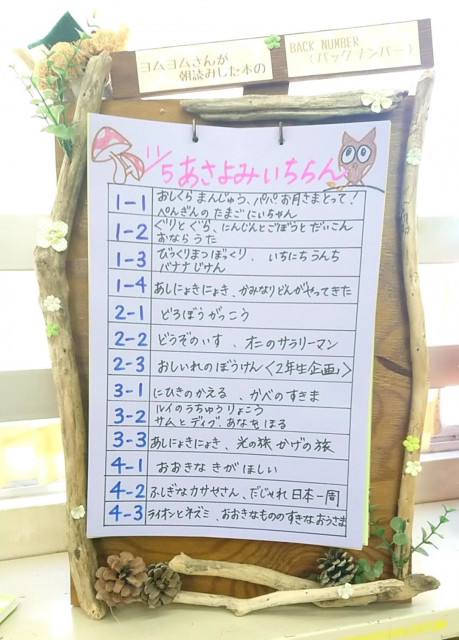 ヨムヨムさんが
朝読みした本の
BACK NUMBER
(バックナンバー)
11/5 あさよみいちらん
1-1 おしくらまんじゅう、パパお月さまとって!
ぺんぎんのたまごにいちゃん
1-2 ぐりとぐら、にんじんとごぼうとだいこん
おならうた
1-3 びっくりまつぼっくり、いちにちうんち
バナナじけん
1-4 あしにょきにょき、かみなりどんがやってきた
2-1 どろぼうがっこう
2-2 どうぞのいす、オニのサラリーマン
2-3 おしいれのぼうけん〈2年生企画〉
3-1 にひきのかえる、かべのすきま
3-2 ルイのうちゅうりょこう
サムとデイブ、あなをほる
3-3 あしにょきにょき、光の旅 かげの旅
4-1 おおきなきがほしい
4-2 ふしぎなカサやさん、だじゃれ日本一周
4-3 ライオンとネズミ、おおきなもののすきなおうさま